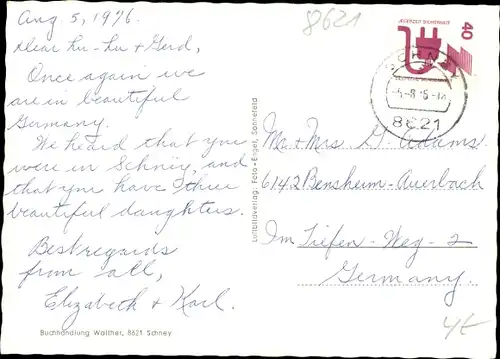 Aug 5, 1976.
Dear Lu-Lu & Gerd,
Once again we
are in beautiful
Germany.
We heard that you
were in Schney, and
that you have 3 three
beautiful daughters.
Best regards
from all,
Elizabeth & Karl.
Buchhandlung Walther, 8621 Schney
Luftbildverlag, Foto-Engel, Sonnefeld
8621
JEDERZEIT SICHERHEIT
40
SCHNEY
8621
Mr + Mrs G. Adams
6142 Bensheim-Auerbach
Im Tiefen-Weg-2
Germany.